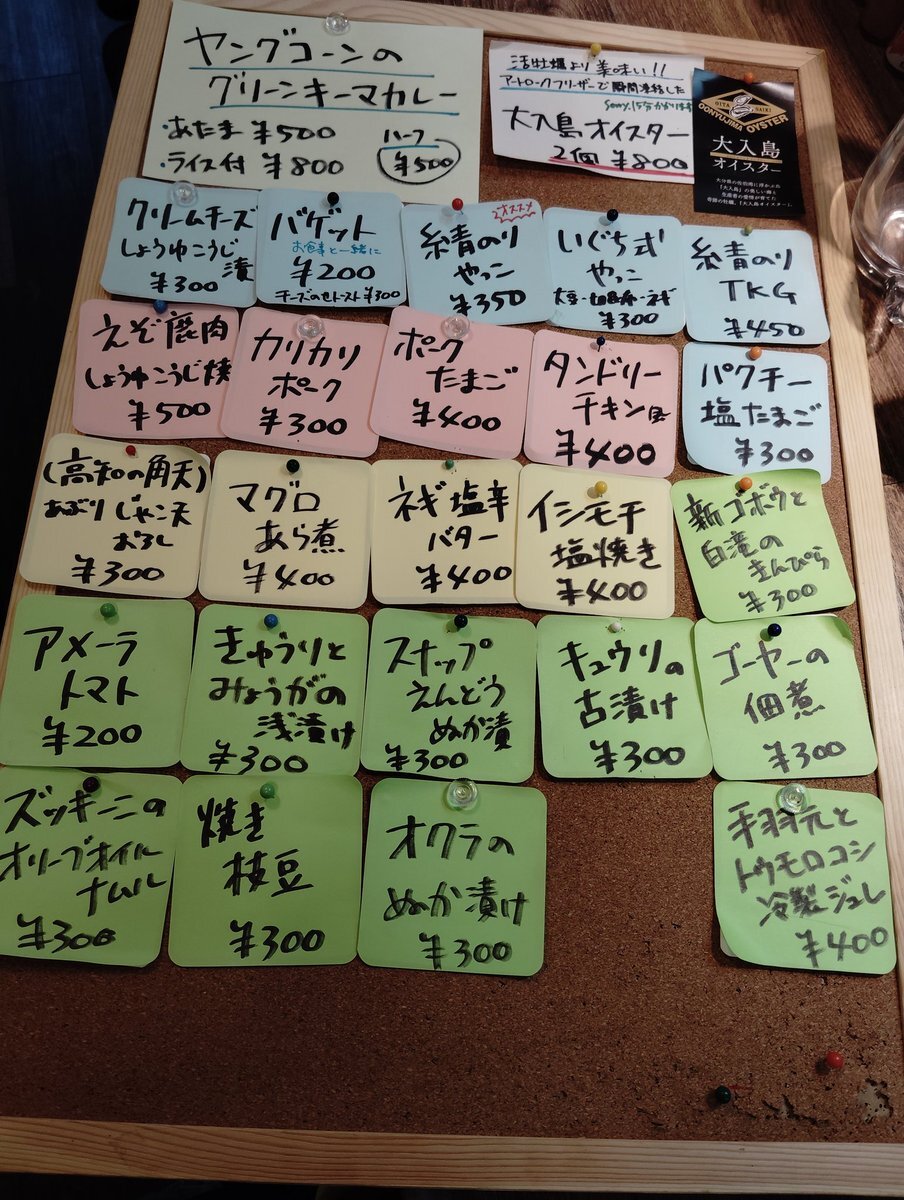 ヤングコーンの
グリーンキーマカレー
・あたま ¥500
・ライス付 ¥800
ハーフ
¥500
活牡蠣より美味い!!
アートロックフリーザーで瞬間凍結した
Sorry, 15分かかります
大入島オイスター
2個 ¥800
OITA SAIKI
OONYUJIMA OYSTER
大入島
オイスター
大分県の佐伯湾に浮かぶ
「大入島」の美しい海と
生産者の愛情が育てた
奇跡の牡蠣、「大入島オイスター」。
クリームチーズ
しょうゆこうじ
漬
¥300
バゲット
お食事と一緒に
¥200
チーズのせトースト ¥300
オススメ
糸青のり
やっこ
¥350
いぐち式
やっこ
¥300
糸青のり
TKG
¥450
えぞ鹿肉
しょうゆこうじ焼
¥500
カリカリ
ポーク
¥300
ポーク
たまご
¥400
タンドリー
チキン風
¥400
パクチー
塩たまご
¥300
(高知の角天)
あぶりじゃこ天
おろし
¥300
マグロ
あら煮
¥400
ネギ塩辛
バター
¥400
イシモチ
塩焼き
¥400
新ゴボウと
白滝の
きんぴら
¥300
アメーラ
トマト
¥200
きゅうりと
みょうがの
浅漬け
¥300
スナップ
えんどう
ぬか漬
¥300
キュウリの
古漬け
¥300
ゴーヤーの
佃煮
¥300
ズッキーニの
オリーブオイル
ナムル
¥300
焼き
枝豆
¥300
オクラの
ぬか漬け
¥300
手羽元と
トウモロコシ
冷製ジュレ
¥400